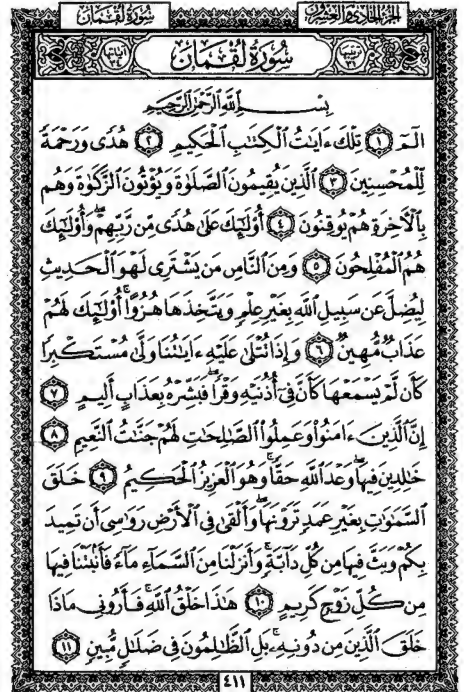 سُورَةُ لُقْمَانَ الجُزْءُ الحَادِي وَالعِشْرُونَ
سُورَةُ لُقْمَانَ
بِسْمِ ٱللَّهِ ٱلرَّحْمَٰنِ ٱلرَّحِيمِ
الٓمٓ ١ تِلْكَ ءَايَٰتُ ٱلْكِتَٰبِ ٱلْحَكِيمِ ٢ هُدًى وَرَحْمَةً
لِّلْمُحْسِنِينَ ٣ ٱلَّذِينَ يُقِيمُونَ ٱلصَّلَوٰةَ وَيُؤْتُونَ ٱلزَّكَوٰةَ وَهُم
بِٱلْءَاخِرَةِ هُمْ يُوقِنُونَ ٤ أُوْلَٰٓئِكَ عَلَىٰ هُدًى مِّن رَّبِّهِمْ ۖ وَأُوْلَٰٓئِكَ
هُمُ ٱلْمُفْلِحُونَ ٥ وَمِنَ ٱلنَّاسِ مَن يَشْتَرِى لَهْوَ ٱلْحَدِيثِ
لِيُضِلَّ عَن سَبِيلِ ٱللَّهِ بِغَيْرِ عِلْمٍ وَيَتَّخِذَهَا هُزُوًا ۚ أُوْلَٰٓئِكَ لَهُمْ
عَذَابٌ مُّهِينٌ ٦ وَإِذَا تُتْلَىٰ عَلَيْهِ ءَايَٰتُنَا وَلَّىٰ مُسْتَكْبِرًا
كَأَن لَّمْ يَسْمَعْهَا كَأَنَّ فِىٓ أُذُنَيْهِ وَقْرًا ۖ فَبَشِّرْهُ بِعَذَابٍ أَلِيمٍ ٧
إِنَّ ٱلَّذِينَ ءَامَنُوا۟ وَعَمِلُوا۟ ٱلصَّٰلِحَٰتِ لَهُمْ جَنَّٰتُ ٱلنَّعِيمِ ٨
خَٰلِدِينَ فِيهَا ۖ وَعْدَ ٱللَّهِ حَقًّا ۚ وَهُوَ ٱلْعَزِيزُ ٱلْحَكِيمُ ٩ خَلَقَ
ٱلسَّمَٰوَٰتِ بِغَيْرِ عَمَدٍ تَرَوْنَهَا ۖ وَأَلْقَىٰ فِى ٱلْأَرْضِ رَوَٰسِىَ أَن تَمِيدَ
بِكُمْ وَبَثَّ فِيهَا مِن كُلِّ دَآبَّةٍ ۚ وَأَنزَلْنَا مِنَ ٱلسَّمَآءِ مَآءً فَأَنۢبَتْنَا فِيهَا
مِن كُلِّ زَوْجٍ كَرِيمٍ ١٠ هَٰذَا خَلْقُ ٱللَّهِ فَأَرُونِى مَاذَا
خَلَقَ ٱلَّذِينَ مِن دُونِهِۦ ۚ بَلِ ٱلظَّٰلِمُونَ فِى ضَلَٰلٍ مُّبِينٍ ١١
٤١١